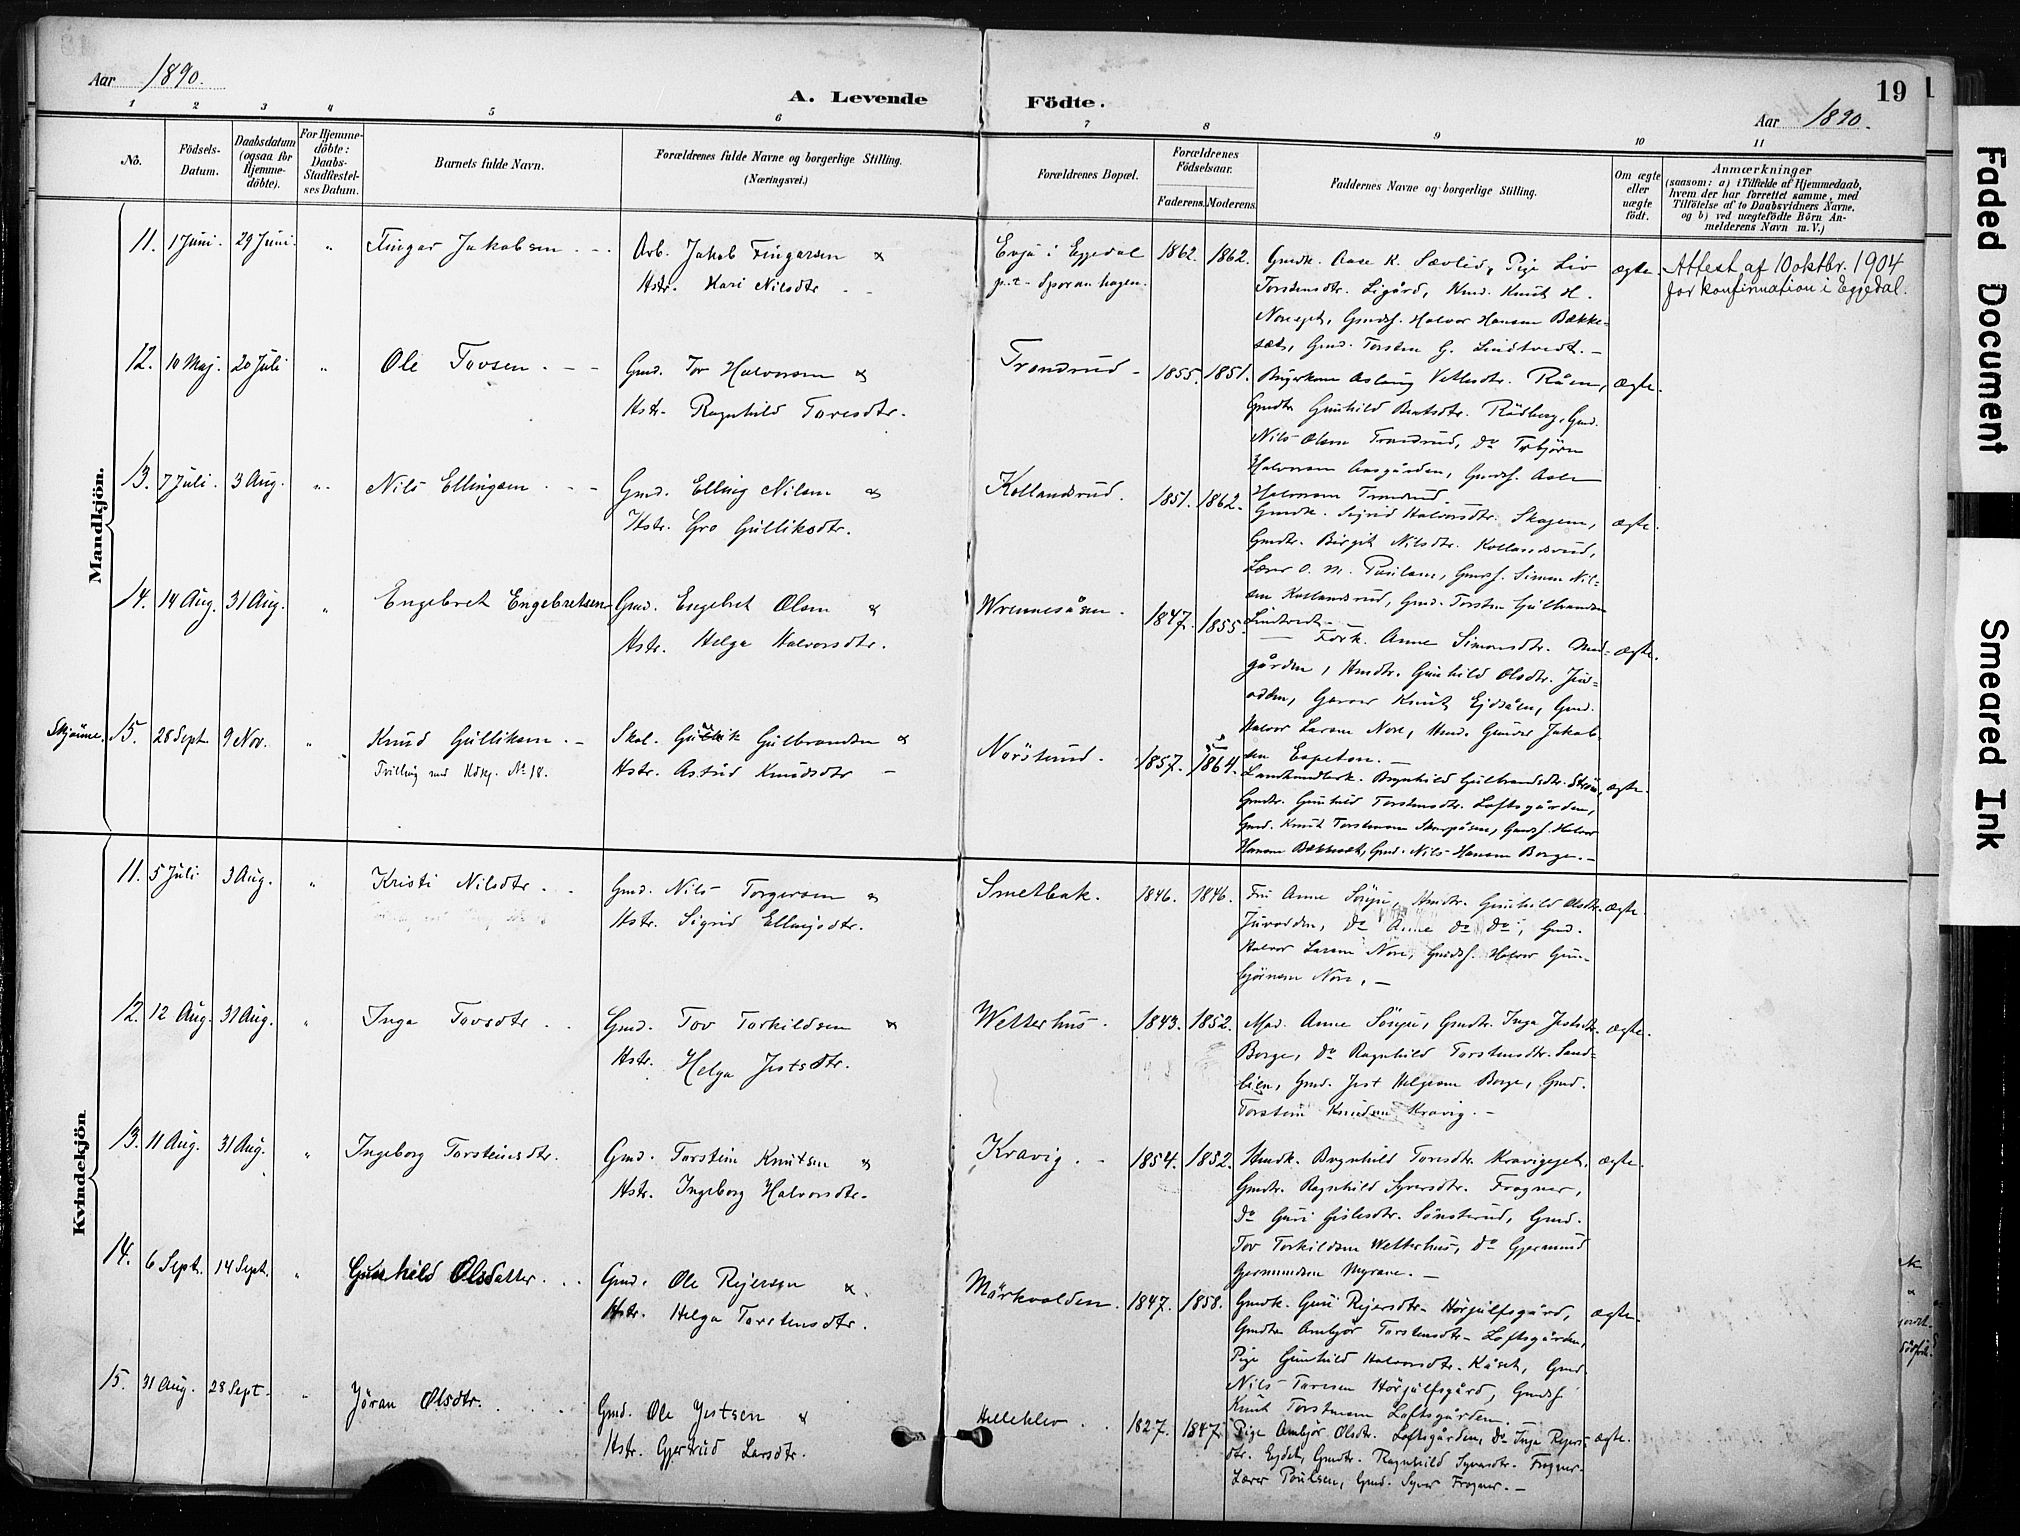 Aar 1890.
A. Levende Födte.
19
Aar 1890.
1 2 3 4 5 6 7 8 9 10 11
No.
Födsels-
Datum.
Daabsdatum
(ogsaa for
Hjemme-
döbte).
For Hjemme-
döbte:
Daabs-
Stadfæstel-
ses Datum.
Barnets fulde Navn.
Forældrenes fulde Navne og borgerlige Stilling.
(Næringsvei.)
Forældrenes Bopæl.
Forældrenes
Födselsaar.
Faderens. Moderens.
Faddernes Navne og borgerlige Stilling.
Om ægte
eller
uægte
födt.
Anmærkninger
(saasom: a) i Tilfælde af Hjemmedaab,
hvem der har forrettet samme, med
Tilföielse af to Daabsvidners Navne,
og b) ved uægtefödte Börn An-
melderens Navn m. V.)
Mandkjön.
11. 1 Juni. 29 Juni. " Fingar Jakobsen
Arb. Jakob Fingarsen &
Hstr. Kari Nilsdtr
Evju i Eggedal
p.t. Sporanhagen.
1862. 1862.
Gmdk. Aase K. Sævlid, Pige Liv
Torstensdtr. Ligård, Kmd. Knut H.
Noreeget, Gmdsf. Halvor Hansen Bække-
sæt, Gmd. Torsten G. Lindtvedt. —
ægte.
Attest af 10 oktbr. 1904
for konfirmation i Eggedal.
12. 10 Maj. 20 Juli " Ole Tovsen.
Gmd. Tov Halvorsen &
Hstr. Ragnhild Toresdtr.
Trondrud —
1855. 1851.
Aslaug Vetlesdtr. Råen,
Gmdtr Gunhild Rødberg, Gmd.
Nils Olsen Trondrud, Do Torbjörn
Halvorsen Aasgården, Gmdsf. Aslen
Halvorsen Trondrud
ægte.
13. 7 Juli. 3 Aug. " Nils Ellingsen
Gmd. Elling Nilsen &
Hstr. Gro Gulliksdtr.
Kollandsrud.
1851. 1862.
Gmdk. Sigrid Halvorsdtr. Skagen,
Gmdtr. Birgit Nilsdtr. Kollandsrud,
Lærer O. M. Paulsen, Gmdsf. Simen Nil-
sen Kollandsrud, Gmd. Torsten Gulbrandsen
Lindtvedt —
ægte.
14. 14 Aug. 31 Aug. " Engebret Engebretsen
Gmd. Engebret Olsen &
Hstr. Helga Halvorsdtr.
Wrennesåsen.
1847. 1855.
Fork. Anne Simonsdtr. Med-
gården, Hmdtr. Gunhild Olsdtr. Juv-
odden, Garver Knut Ejdsåsen, Gmd.
Halvor Larsen Nore, Hmd. Gunder Jakob-
sen Espeton. —
ægte.
Skjönne. 15. 28 Sept. 9 Nov. " Knud Gulliksen
Tvilling med Kdkj. No 18.
Skol. Gullik Gulbrandsen &
Hstr. Astrid Knudsdtr —
Nörsterud.
1857. 1864.
Landhandlerk. Bergnhild Gulbrandsdtr. Ström,
Gmdtr. Gunhild Torstensdtr. Loftsgården,
Gmd. Knut Torstensen Skarpåsen, Gmdsf. Halvor
Hansen Bækkesæt, Gmd. Nils Hansen Borge. —
ægte.
Kvindekjön
11. 5 Juli 3 Aug. " Kristi Nilsdtr.
Gmd. Nils Torgersen &
Hstr. Sigrid Ellingsdtr.
Smetbak.
1846. 1846.
Fru Anne Sörju, Hmdtr. Gunhild Olsdtr.
Juvodden, Do Anne Do Do, Gmd.
Halvor Larsen Nore, Gmdsf. Halvor Gun-
björnsen Nore. —
ægte.
12. 12 Aug. 31 Aug. " Inga Tovsdtr
Gmd. Tov Torkildsen &
Hstr. Helga Jestsdtr.
Wetterhus.
1843. 1852.
Mad. Anne Sörju, Gmdtr. Inga Jestsdtr.
Borge, Do Ragnhild Torstensdtr. Sand-
lien, Gmd. Jest Helgesen Borge, Gmd.
Torstein Knudsen Kravig. —
ægte.
13. 11 Aug. 31 Aug. " Ingeborg Torsteinsdtr.
Gmd. Torstein Knutsen &
Hstr. Ingeborg Halvorsdtr.
Kravig. —
1854. 1852.
Hmdk. Bergnhild Toresdtr. Kravigejet,
Gmdtr. Ragnhild Syversdtr. Frogner,
Do Guri Gislesdtr. Sönsterud, Gmd.
Tov Torkildsen Wetterhus, Do Gjermund
Gjermundsen Myrane. —
ægte.
14. 6 Sept. 14 Sept. " Gunhild Olsdatter.
Gmd. Ole Rejersen &
Hstr. Helga Torstensdtr.
Mörkvolden.
1847. 1858.
Gmdk. Guri Rejersdtr. Hörjulfsgård,
Gmdtr. Ambjör Torstensdtr. Loftsgården,
Pige Gunhild Halvorsdtr. Kåset, Gmd.
Nils Toresen Hörjulfsgård, Gmdsf.
Knut Torstensen Loftsgården.
ægte
15. 31 Aug. 28 Sept. " Jöran Olsdtr.
Gmd. Ole Jestsen &
Hstr. Gjertrud Larsdtr.
Helleklev
1827. 1847.
Pige Ambjör Olsdtr. Loftsgården, Do Inga Rejers-
dtr. Ejdet, Gmdtr. Ragnhild Syversdtr. Frogner.
Lærer Poulsen, Gmd. Syver Frogner. —
ægte.
Faded Document
Smeared Ink